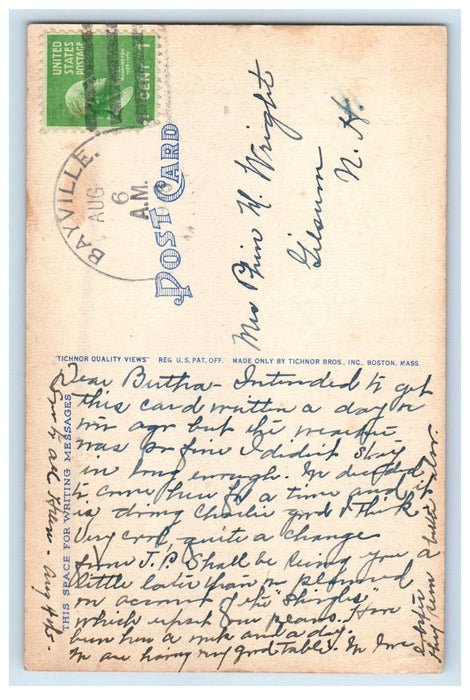 UNITED
STATES
POSTAGE
1 CENT 1
BAYVILLE.
AUG
6
A.M.
POST CARD
Mrs Phin H. Wright
Gilsum
N. H.
"TICHNOR QUALITY VIEWS" REG. U.S. PAT. OFF. MADE ONLY BY TICHNOR BROS., INC., BOSTON, MASS.
THIS SPACE FOR WRITING MESSAGES
Dear Burtha - Intended to get
this card written a day or
two ago but the weather
was so fine I didn't stay
in long enough. We decided
to come here for a time and it
is doing Charlie good I think
Very cool, quite a change
from J.P. Shall be seeing you a
little later than we planned
on account of the "Shingles"
which upset our plans. Have
been here a week and a day.
We are having very good table.
Love to all